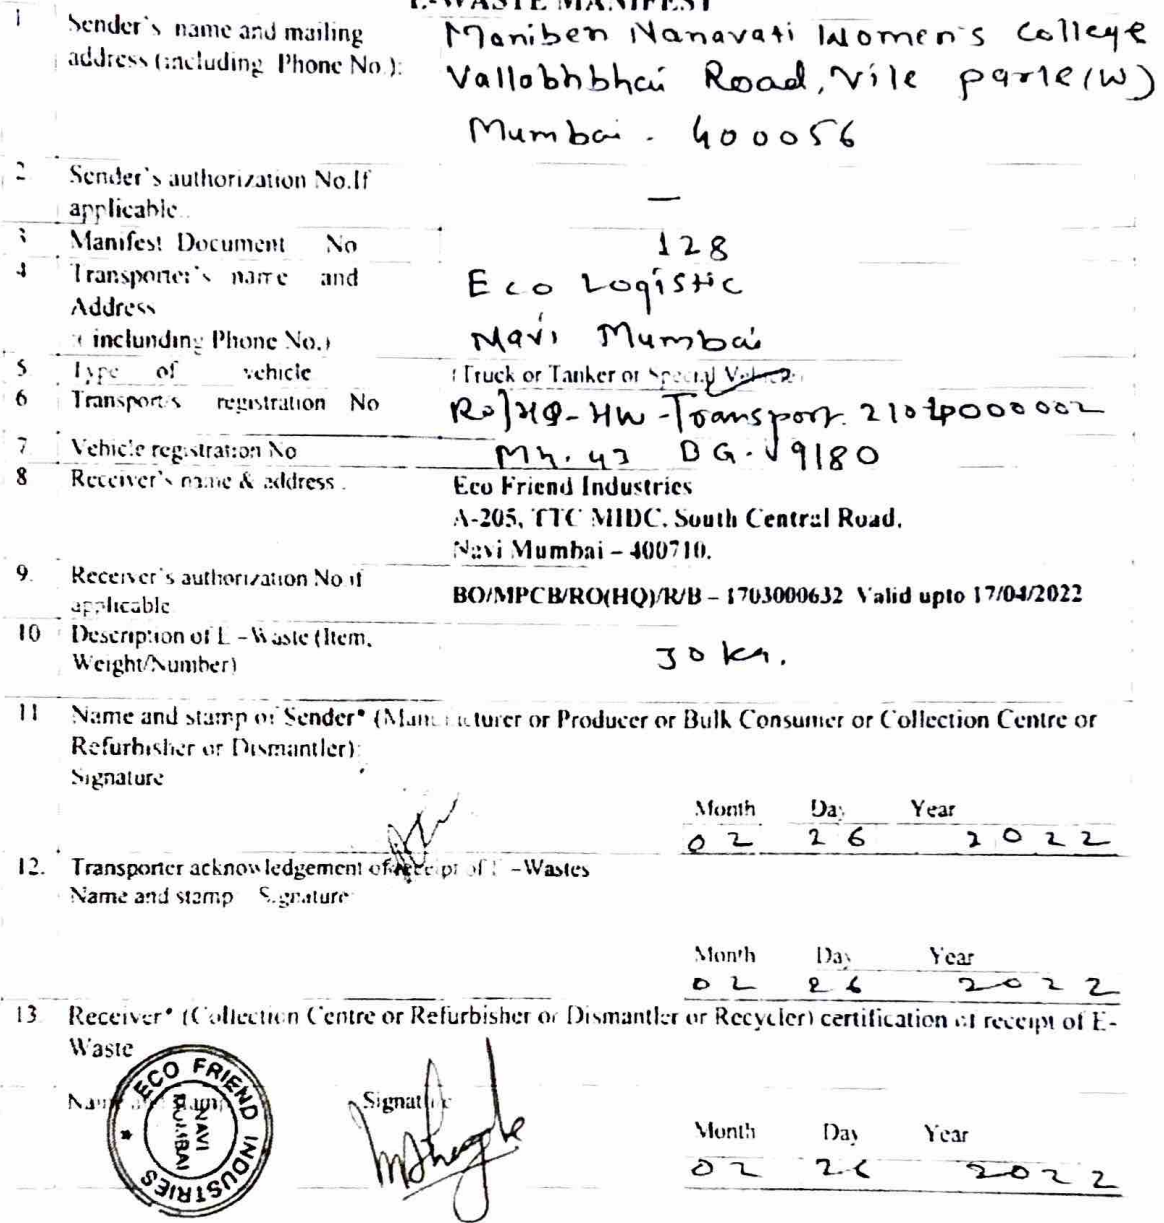 E-WASTE MANIFEST
1 Sender's name and mailing address (including Phone No.): Maniben Nanavati Women's College
Vallobhbhai Road, Vile parle (W)
Mumbai - 400056
2 Sender's authorization No.If applicable.. —
3 Manifest Document No 128
4 Transporter's name and Address ( inclunding Phone No.) Eco Logistic
Navi Mumbai
5 Type of vehicle (Truck or Tanker or Special Vehicle)
6 Transport's registration No -HW-Transport.
7. Vehicle registration No Mh. 43 BG. 9180
8 Receiver's name & address . Eco Friend Industries
A-205, TTC MIDC, South Central Road,
Navi Mumbai – 400710.
9. Receiver's authorization No.if applicable BO/MPCB/RO(HQ)/R/B – 1703000632 Valid upto 17/04/2022
10 Description of E –Waste (Item, Weight/Number) 30 kg.
11 Name and stamp of Sender* (Manufacturer or Producer or Bulk Consumer or Collection Centre or
Refurbisher or Dismantler):
Signature
Month Day Year
02 26 2022
12. Transporter acknowledgement of receipt of E –Wastes
Name and stamp Signature
Month Day Year
02 26 2022
13. Receiver* (Collection Centre or Refurbisher or Dismantler or Recycler) certification of receipt of E-
Waste
Name and Stamp Signature
ECO FRIEND INDUSTRIES
NAVI
MUMBAI
Month Day Year
02 26 2022